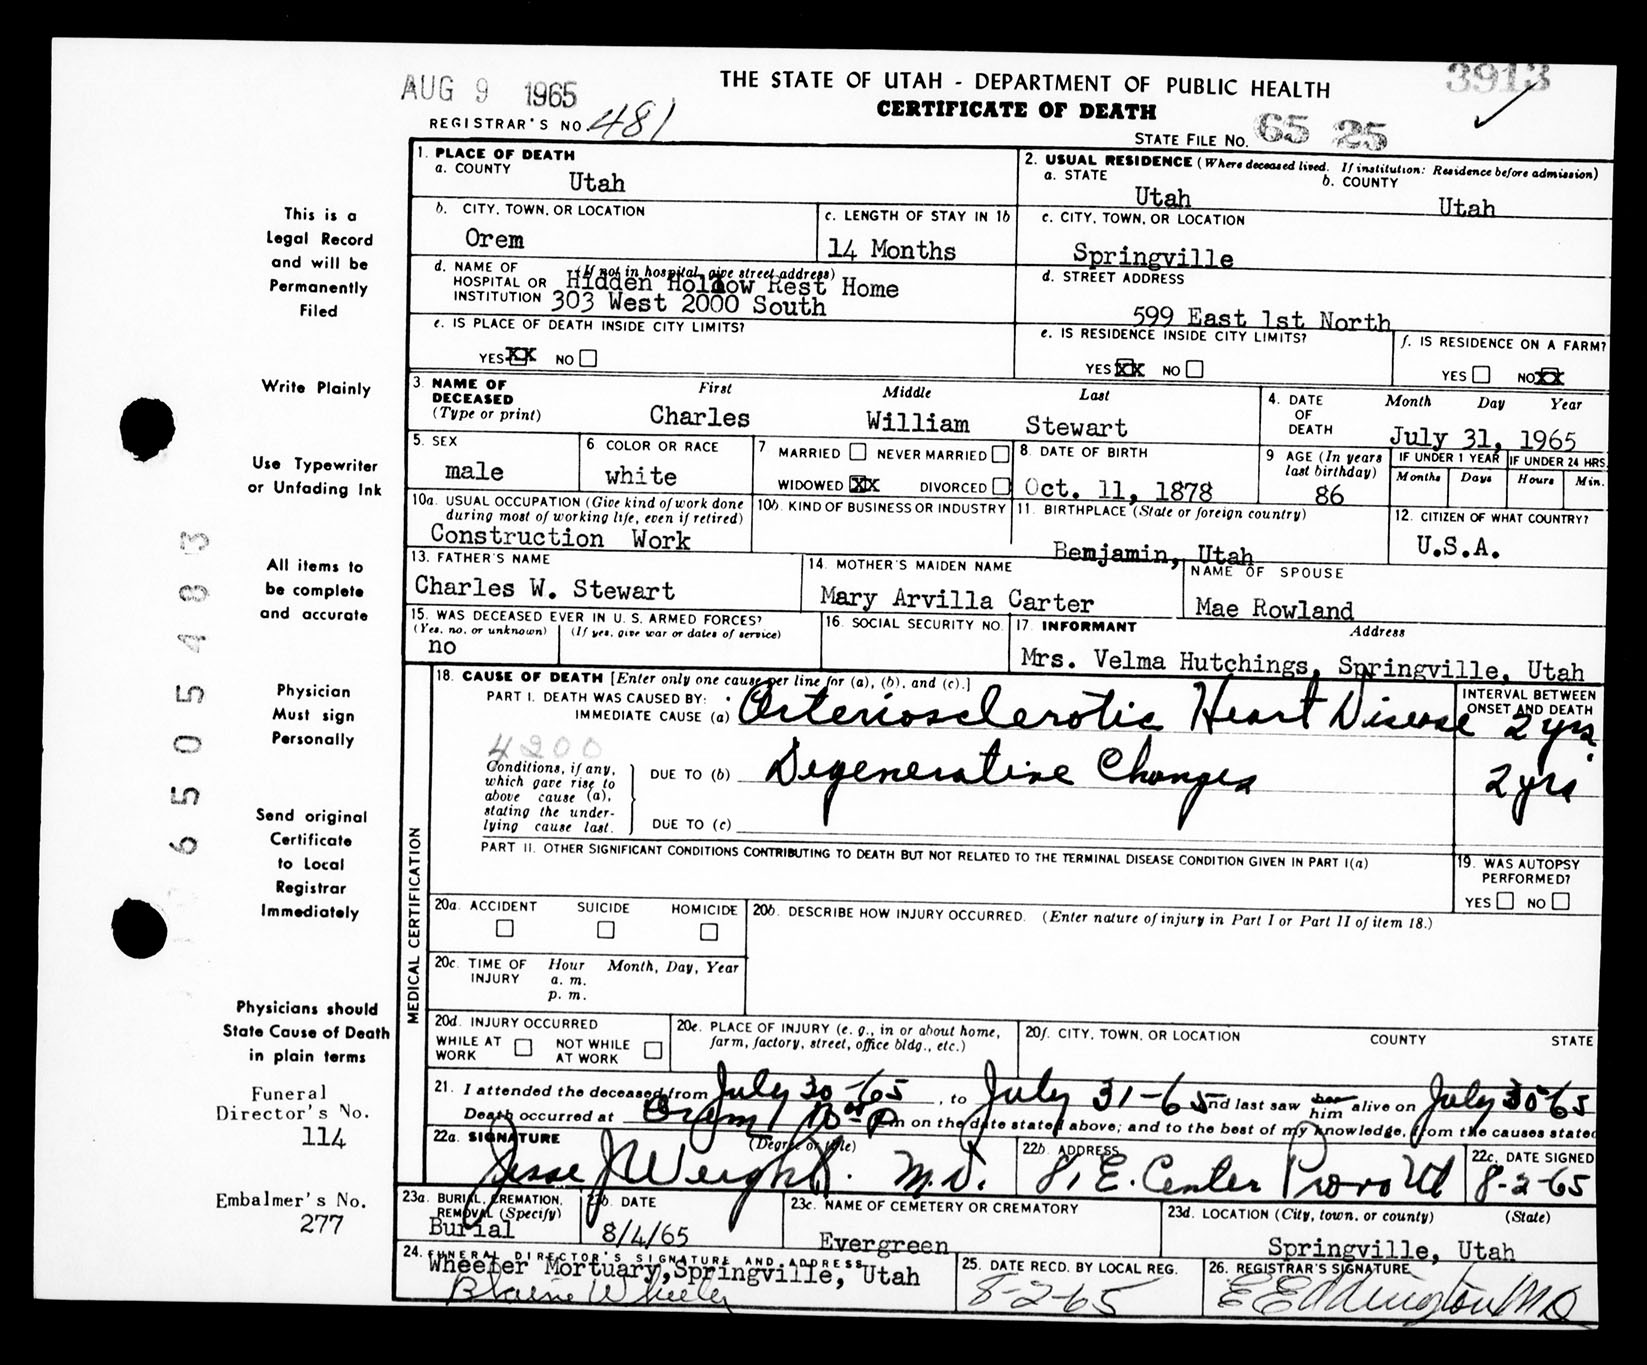 AUG 9 1965
THE STATE OF UTAH - DEPARTMENT OF PUBLIC HEALTH
3913
CERTIFICATE OF DEATH
REGISTRAR'S NO. 481
STATE FILE NO. 65 25
1. PLACE OF DEATH
a. COUNTY
Utah
2. USUAL RESIDENCE (Where deceased lived. If institution: Residence before admission)
a. STATE
Utah
b. COUNTY
Utah
b. CITY, TOWN, OR LOCATION
Orem
c. LENGTH OF STAY IN 1b
14 Months
c. CITY, TOWN, OR LOCATION
Springville
d. NAME OF HOSPITAL OR INSTITUTION
(If not in hospital, give street address)
Hidden Hollow Rest Home
303 West 2000 South
d. STREET ADDRESS
599 East 1st North
e. IS PLACE OF DEATH INSIDE CITY LIMITS?
YES XX NO
e. IS RESIDENCE INSIDE CITY LIMITS?
YES XX NO
f. IS RESIDENCE ON A FARM?
YES NO XX
3. NAME OF DECEASED
(Type or print)
First Middle Last
Charles William Stewart
4. DATE OF DEATH
Month Day Year
July 31, 1965
5. SEX
male
6 COLOR OR RACE
white
7 MARRIED NEVER MARRIED
WIDOWED XX DIVORCED
8. DATE OF BIRTH
Oct. 11, 1878
9 AGE (In years last birthday)
86
IF UNDER 1 YEAR
Months Days
IF UNDER 24 HRS.
Hours Min.
10a. USUAL OCCUPATION (Give kind of work done during most of working life, even if retired)
Construction Work
10b. KIND OF BUSINESS OR INDUSTRY
11. BIRTHPLACE (State or foreign country)
Bemjamin, Utah
12. CITIZEN OF WHAT COUNTRY?
U.S.A.
13. FATHER'S NAME
Charles W. Stewart
14. MOTHER'S MAIDEN NAME
Mary Arvilla Carter
NAME OF SPOUSE
Mae Rowland
15. WAS DECEASED EVER IN U. S. ARMED FORCES?
(Yes, no, or unknown) (If yes, give war or dates of service)
no
16. SOCIAL SECURITY NO.
17. INFORMANT Address
Mrs. Velma Hutchings, Springville, Utah
MEDICAL CERTIFICATION
18. CAUSE OF DEATH [Enter only one cause per line for (a), (b), and (c).]
PART I. DEATH WAS CAUSED BY:
IMMEDIATE CAUSE (a) Arteriosclerotic Heart Disease
INTERVAL BETWEEN ONSET AND DEATH
2 yrs.
4200
Conditions, if any, which gave rise to above cause (a), stating the underlying cause last.
DUE TO (b) Degenerative Changes
2 yrs
DUE TO (c)
PART II. OTHER SIGNIFICANT CONDITIONS CONTRIBUTING TO DEATH BUT NOT RELATED TO THE TERMINAL DISEASE CONDITION GIVEN IN PART I(a)
19. WAS AUTOPSY PERFORMED?
YES NO
20a. ACCIDENT SUICIDE HOMICIDE
20b. DESCRIBE HOW INJURY OCCURRED. (Enter nature of injury in Part I or Part II of item 18.)
20c. TIME OF INJURY
Hour Month, Day, Year
a. m.
p. m.
20d. INJURY OCCURRED
WHILE AT WORK
NOT WHILE AT WORK
20e. PLACE OF INJURY (e. g., in or about home, farm, factory, street, office bldg., etc.)
20f. CITY, TOWN, OR LOCATION COUNTY STATE
21. I attended the deceased from July 30-65, to July 31-65 and last saw her him alive on July 30 65
Death occurred at Orem m on the date stated above; and to the best of my knowledge, from the causes stated
22a. SIGNATURE (Degree or title)
Jesse J Weight. M.D.
22b. ADDRESS
E. Center Provo Ut
22c. DATE SIGNED
8-2-65
23a. BURIAL, CREMATION, REMOVAL (Specify)
Burial
23b. DATE
8/4/65
23c. NAME OF CEMETERY OR CREMATORY
Evergreen
23d. LOCATION (City, town, or county) (State)
Springville, Utah
24. FUNERAL DIRECTOR'S SIGNATURE AND ADDRESS
Wheeler Mortuary, Springville, Utah
Blaine Wheeler
25. DATE RECD. BY LOCAL REG.
8-2-65
26. REGISTRAR'S SIGNATURE
E E Eddington MD
This is a
Legal Record
and will be
Permanently
Filed
Write Plainly
Use Typewriter
or Unfading Ink
All items to
be complete
and accurate
Physician
Must sign
Personally
Send original
Certificate
to Local
Registrar
Immediately
Physicians should
State Cause of Death
in plain terms
Funeral
Director's No.
114
Embalmer's No.
277
65 05 4 83